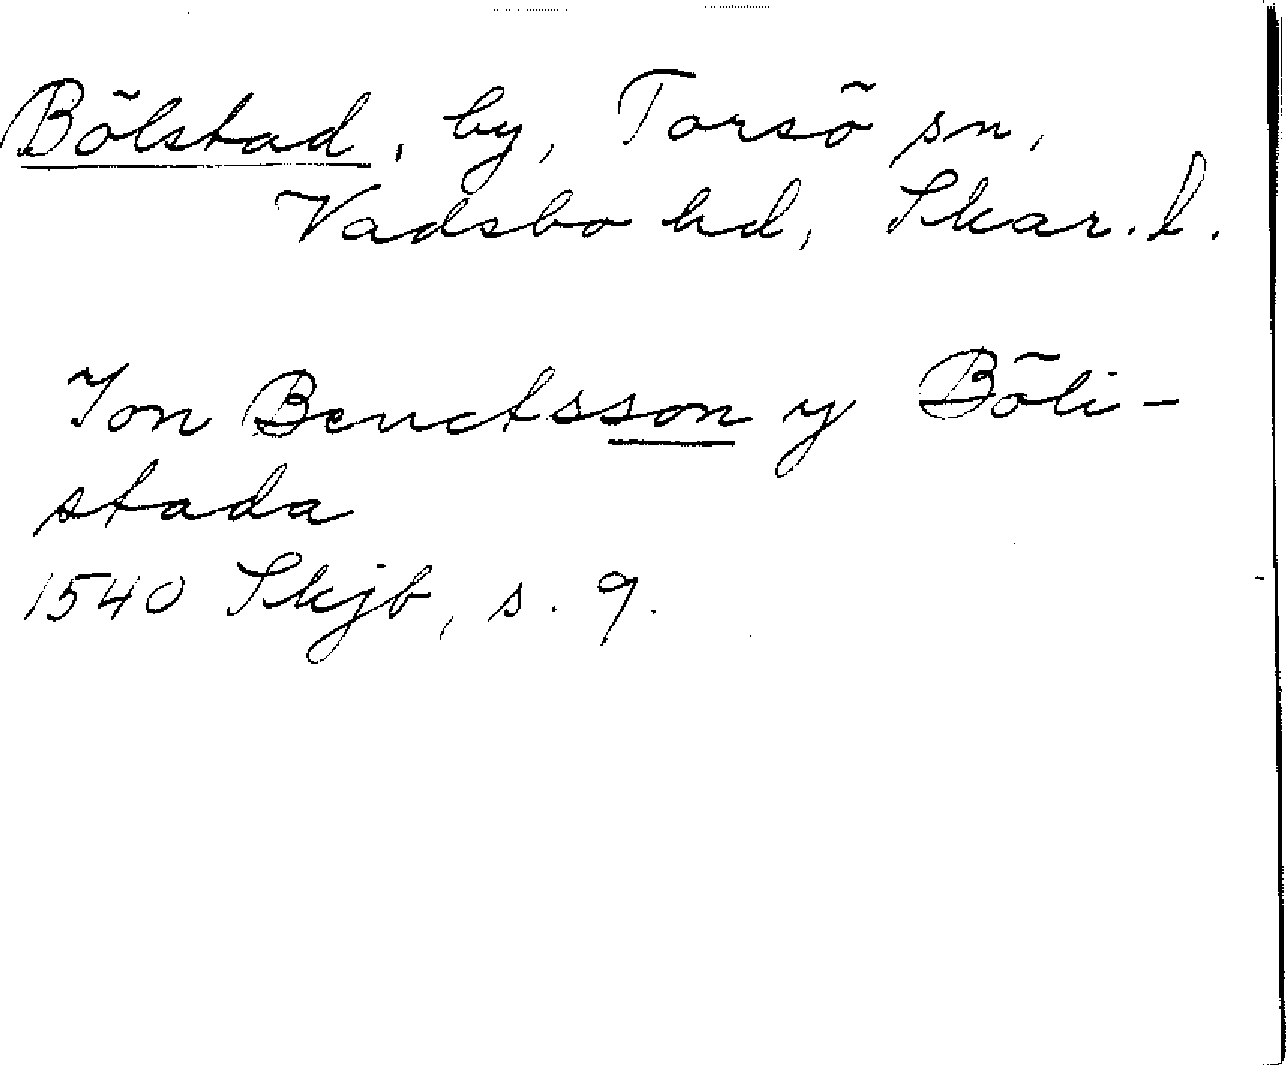 Bölstad, by, Torsö sn,
Vadsbo hd, Skar. l.
Jon Benctsson y Böli-
stada
1540 Skjb, s. 9.